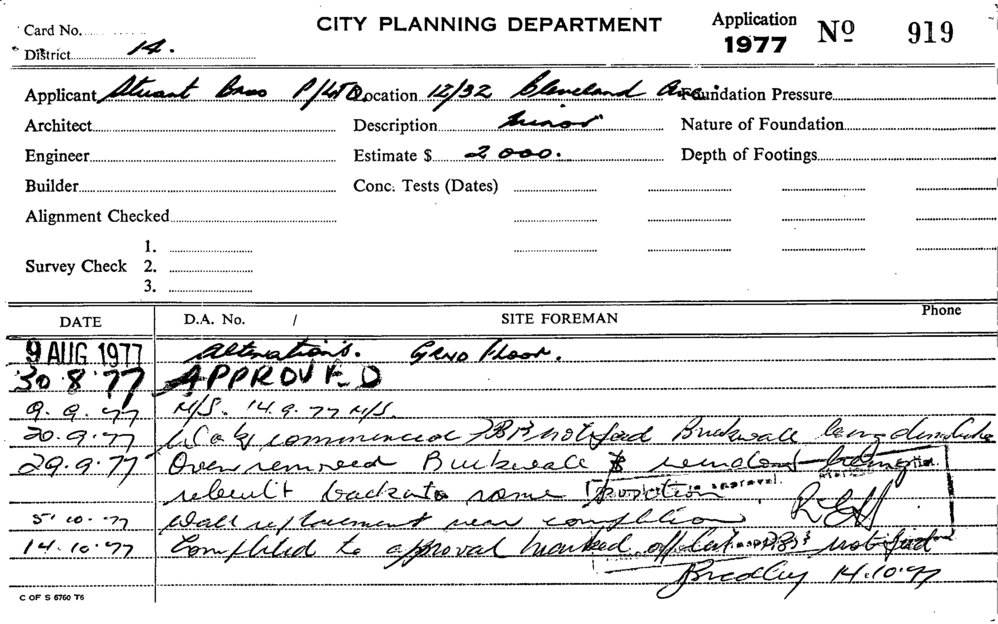 Card No. CITY PLANNING DEPARTMENT Application 1977 Nº 919
District 14.
Applicant Stuart Bros P/LTD Location 12/32 Cleveland Ave. Foundation Pressure
Architect Description Minor Nature of Foundation
Engineer Estimate $ 2 000. Depth of Footings
Builder Conc. Tests (Dates)
Alignment Checked
1.
Survey Check 2.
3.
DATE D.A. No. / SITE FOREMAN Phone
9 AUG 1977 Alterations. Grnd Floor.
30.8.77 APPROVED
9.9.77 N/S. 14.9.77 N/S.
20.9.77 Work commenced notified Brickwall being
29.9.77 Oven removed Brickwall & window being
rebuilt back into same position
5.10.77 Wall replacement near completion
14.10.77 Completed to approval marked off list notified
Bradley 14.10.77
C OF S 6760 T6